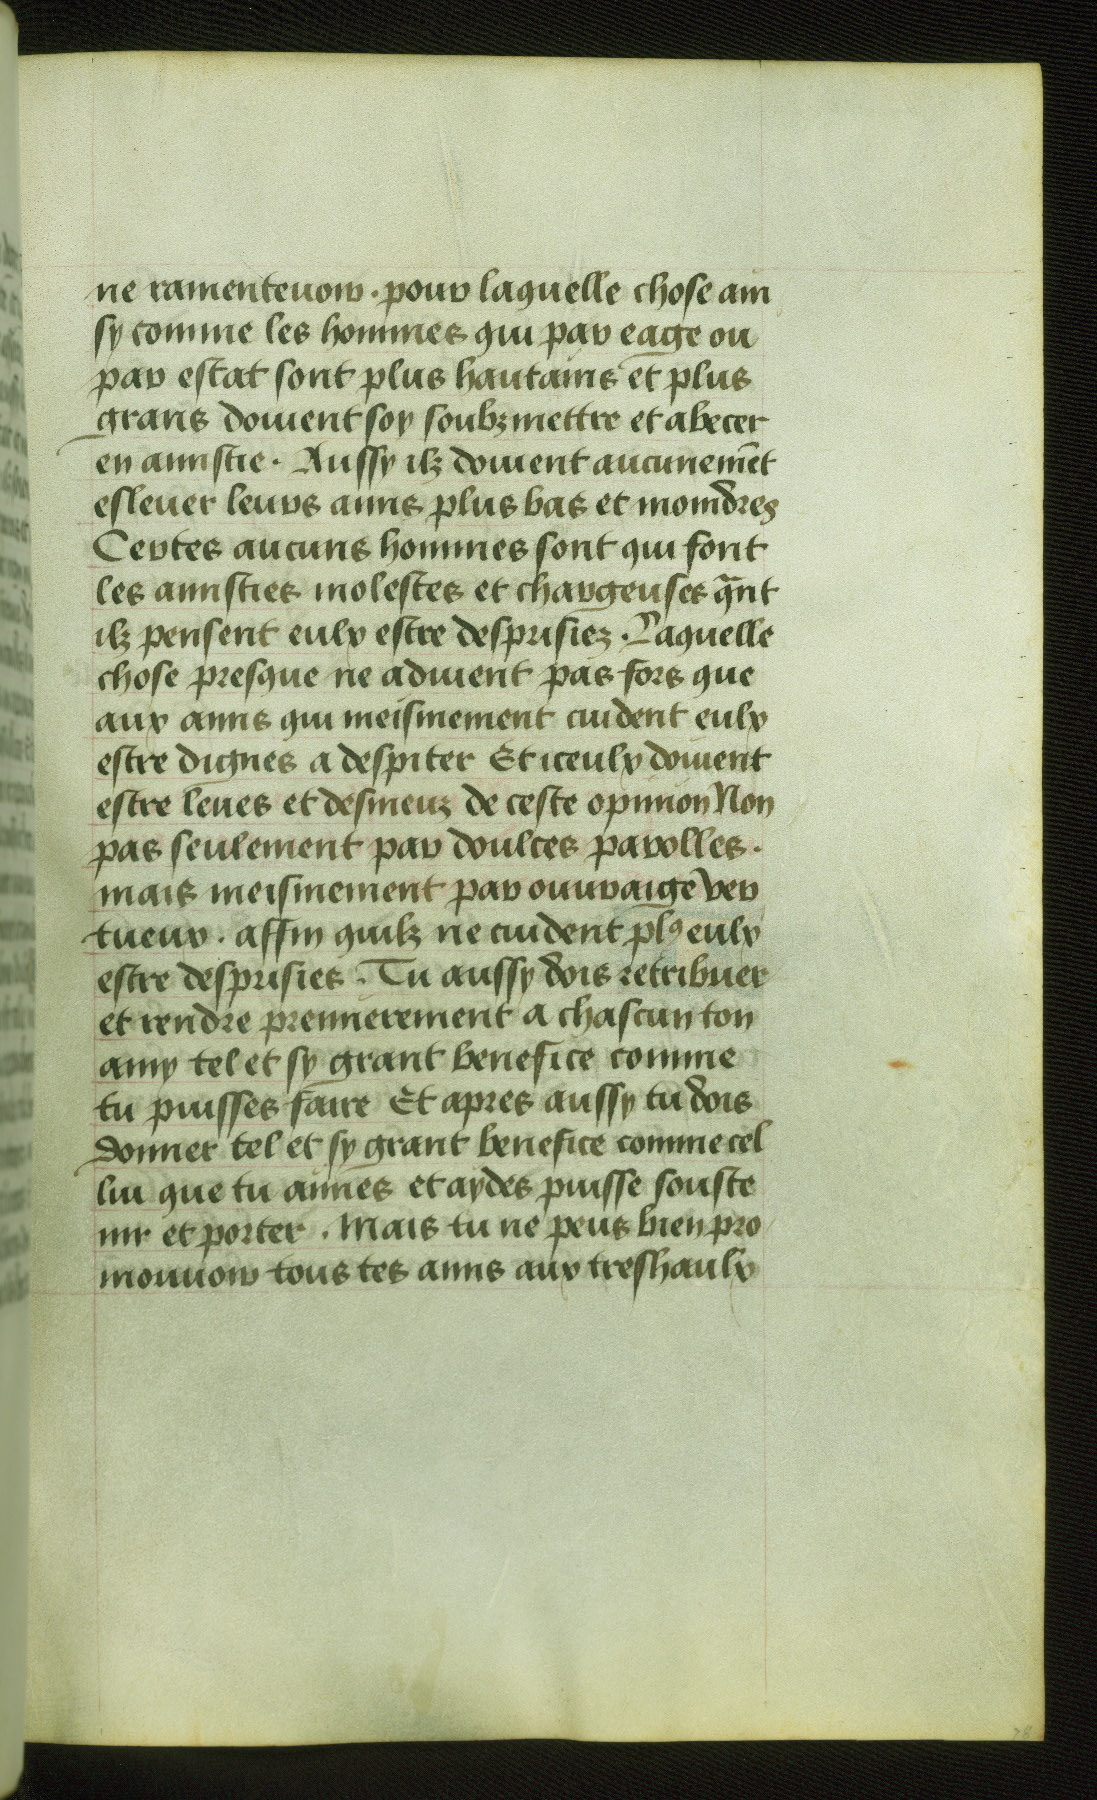 ne ramenteuoir. pour laquelle chose ain
sy comme les hommes qui par eage ou
par estat sont plus haultains et plus
grans doiuent soy soubzmettre et abecer
en amistie. Aussy ilz doiuent aucunemēt
esleuer leurs amis plus bas et moindres
Certes aucuns hommes sont qui font
les amisties molestes et chargeuses q̄nt
ilz pensent eulx estre desprisiez. Laquelle
chose presque ne aduient pas fors que
aux amis qui meismement cuident eulx
estre dignes a despiter Et iceulx doiuent
estre leues et desmeuz de ceste opinion Non
pas seulement par doulces parolles.
mais meismement par ouuraige ver
tueux. affin quilz ne cuident plꝰ eulx
estre desprisies. Tu aussy dois retribuer
et rendre premierement a chascun ton
amy tel et sy grant benefice comme
tu puisses faire Et apres aussy tu dois
donner tel et sy grant benefice comme cel
lui que tu aimes et aydes puisse souste
nir et porter. Mais tu ne peus bien pro
mouuoir tous tes amis aux treshaulx